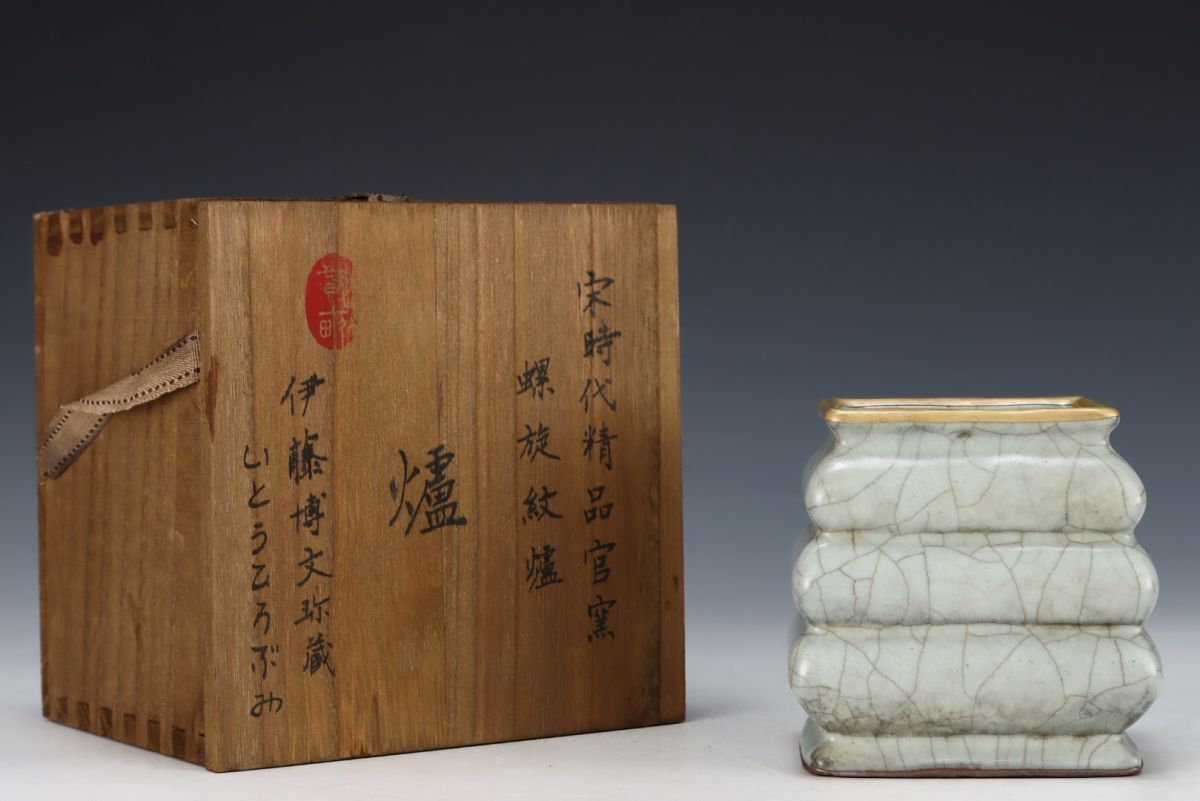 宋時代精品官窯
螺旋紋爐
爐
伊藤博文珍蔵
いとうひろぶみ